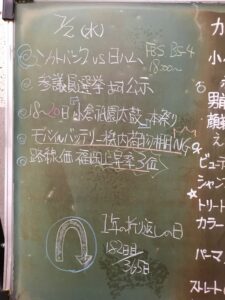 7/2(水)
◎ソフトバンクvs日ハム BS BS-4
18:00〜
◎参議員選挙 公示
◎18〜20日小倉祇園太鼓 本祭り
◎モバイルバッテリー機内荷物棚NG
◎路線価 福岡上昇率3位
1年の折り返しの日
183日目/365日
カ
小
男
顔
ビュー
シャン
トリート
カラー
パーマ
ストレート